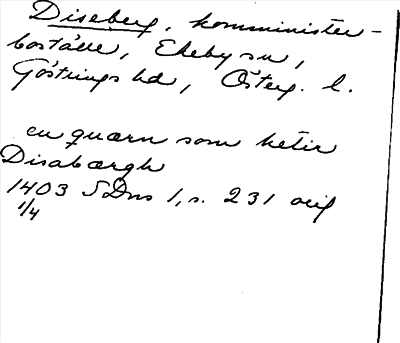 Diseberg, komminister-
boställe, Ekeby sn,
Göstrings hd, Österg. l.
en quærn som hetir
Disabærgh
1403 SDns 1, s. 231 orig
1/4